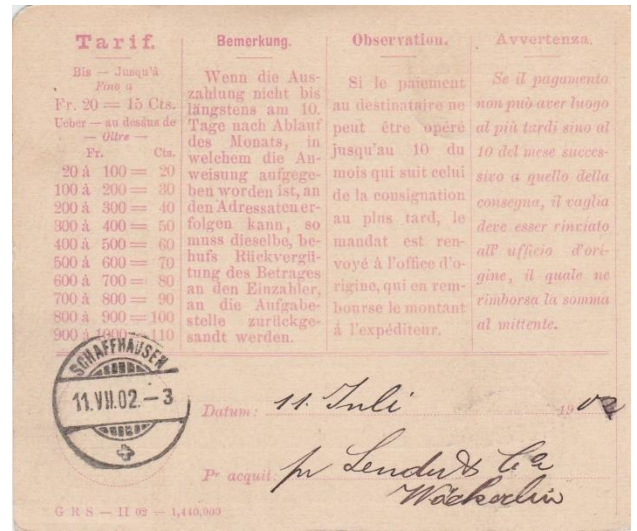 Tarif.
Bis — Jusqu'à
Fino a
Fr. 20 = 15 Cts.
Ueber — au dessus de
— Oltre —
Fr. Cts.
20 à 100 = 20
100 à 200 = 30
200 à 300 = 40
300 à 400 = 50
400 à 500 = 60
500 à 600 = 70
600 à 700 = 80
700 à 800 = 90
800 à 900 = 100
900 à 1000 = 110
Bemerkung.
Wenn die Aus-
zahlung nicht bis
längstens am 10.
Tage nach Ablauf
des Monats, in
welchem die An-
weisung aufgege-
ben worden ist, an
den Adressaten er-
folgen kann, so
muss dieselbe, be-
hufs Rückvergü-
tung des Betrages
an den Einzahler,
an die Aufgabe-
stelle zurückge-
sandt werden.
Observation.
Si le paiement
au destinataire ne
peut être opéré
jusqu'au 10 du
mois qui suit celui
de la consignation
au plus tard, le
mandat est ren-
voyé à l'office d'o-
rigine, qui en rem-
bourse le montant
à l'expéditeur.
Avvertenza.
Se il pagamento
non può aver luogo
al più tardi sino al
10 del mese succes-
sivo a quello della
consegna, il vaglia
deve esser rinciato
all' ufficio d'ori-
gine, il quale ne
rimborsa la somma
al mittente.
SCHAFFHAUSEN
11.VII.02.–3
Datum: 11. Juli 1902
Pr acquit: pr Lendu & Cie
Wäckerlin
G R S — II 02 — 1,440,000